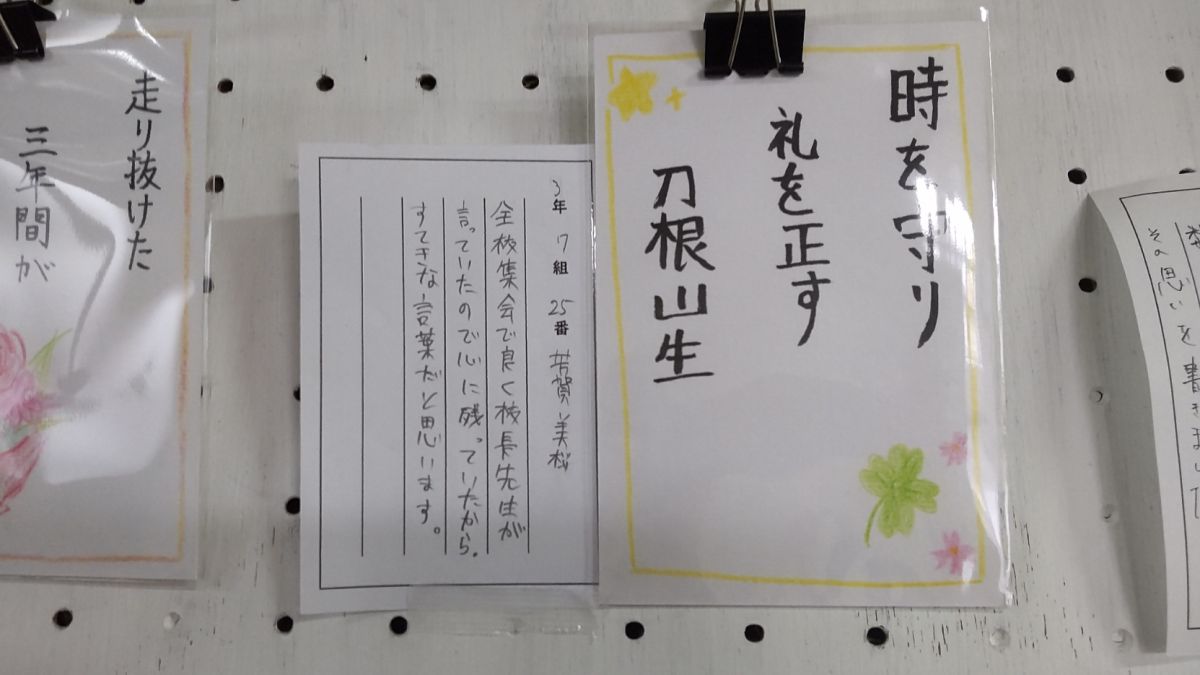 時を守り
礼を正す
刀根山生
3年 7組 25番 芳賀美桜
全校集会で良く校長先生が
言っていたので心に残っていたから。
すてきな言葉だと思います。
走り抜けた
三年間が
その思いを書きまし